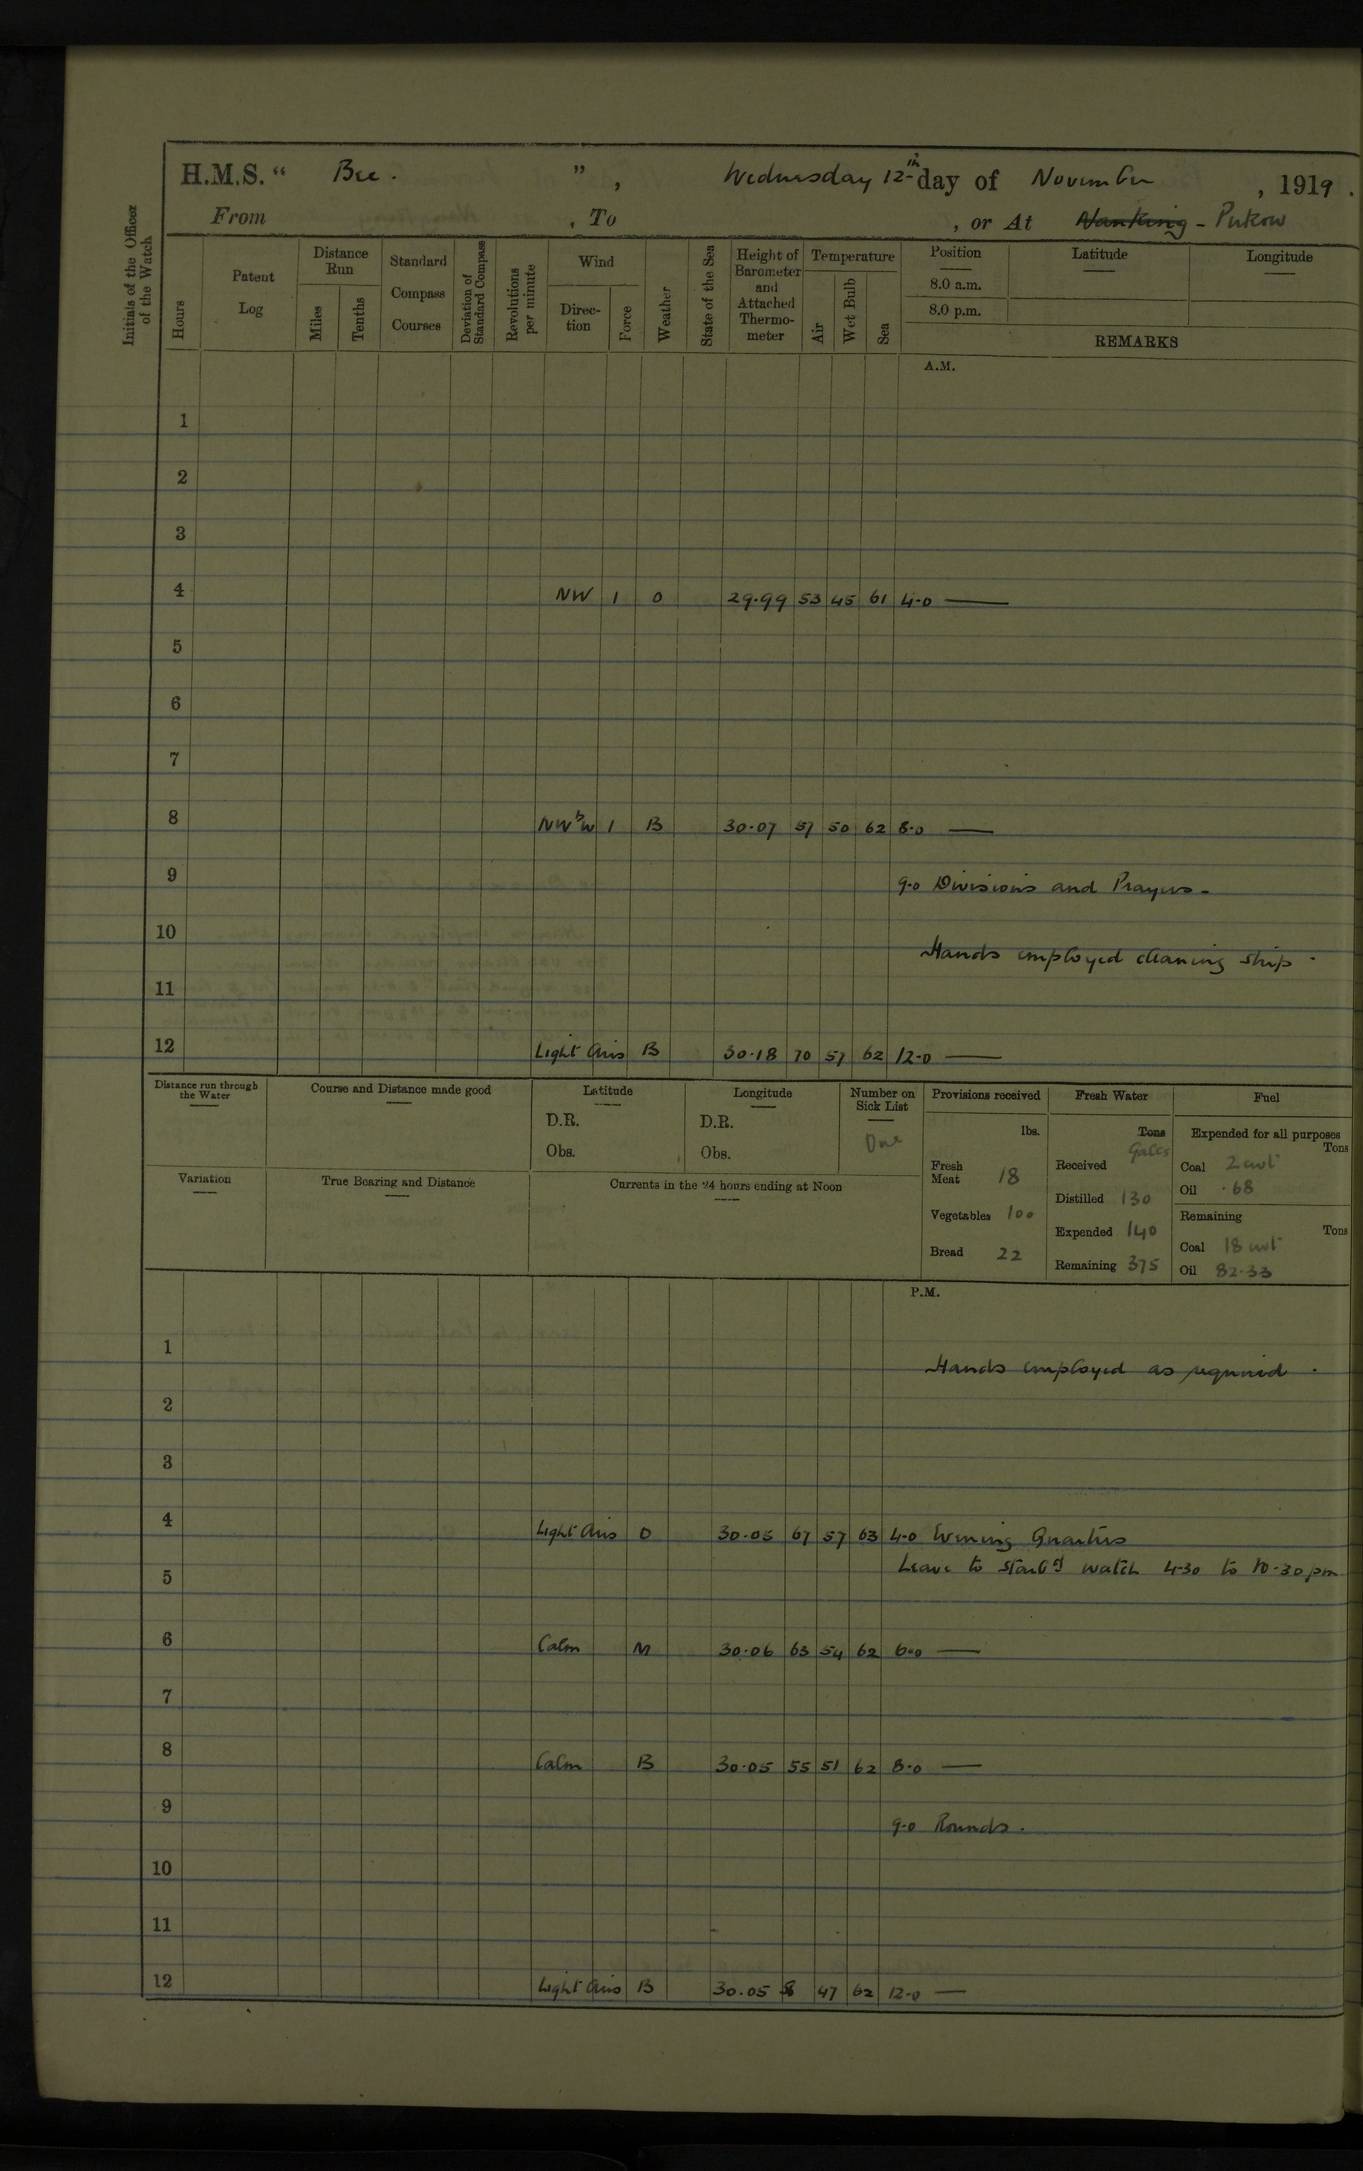 H.M.S. “ Bee. ” , Wednesday 12th day of November , 1919.
From , To , or At Nanking - Pukow
Initials of the Officer of the Watch
Hours
Patent Log
Distance Run
Miles
Tenths
Standard Compass Courses
Deviation of Standard Compass
Revolutions per minute
Wind
Direction
Force
Weather
State of the Sea
Height of Barometer and Attached Thermometer
Temperature
Air
Wet Bulb
Sea
Position
8.0 a.m.
8.0 p.m.
Latitude
Longitude
REMARKS
A.M.
1
2
3
4 NW 1 O 29.99 53 45 61 4.0 —
5
6
7
8 NWbW 1 B 30.07 57 50 62 8.0 —
9 9.0 Divisions and Prayers.
10 Hands employed cleaning ship.
11
12 Light Airs B 30.18 70 57 62 12.0 —
Distance run through the Water
Course and Distance made good
Latitude
D.R.
Obs.
Longitude
D.R.
Obs.
Number on Sick List
One
Provisions received
lbs.
Fresh Meat 18
Vegetables 100
Bread 22
Fresh Water
Tons
Galls
Received
Distilled 130
Expended 140
Remaining 375
Fuel
Expended for all purposes
Tons
Coal 2 cwt
Oil .68
Remaining
Tons
Coal 18 cwt
Oil 82.33
Variation
True Bearing and Distance
Currents in the 24 hours ending at Noon
P.M.
1 Hands employed as required.
2
3
4 Light Airs O 30.05 67 57 63 4.0 Evening Quarters
Leave to Starbd watch 4.30 to 10.30 pm
5
6 Calm M 30.06 63 54 62 6.0 —
7
8 Calm B 30.05 55 51 62 8.0 —
9 9.0 Rounds.
10
11
12 Light Airs B 30.05 47 62 12.0 —